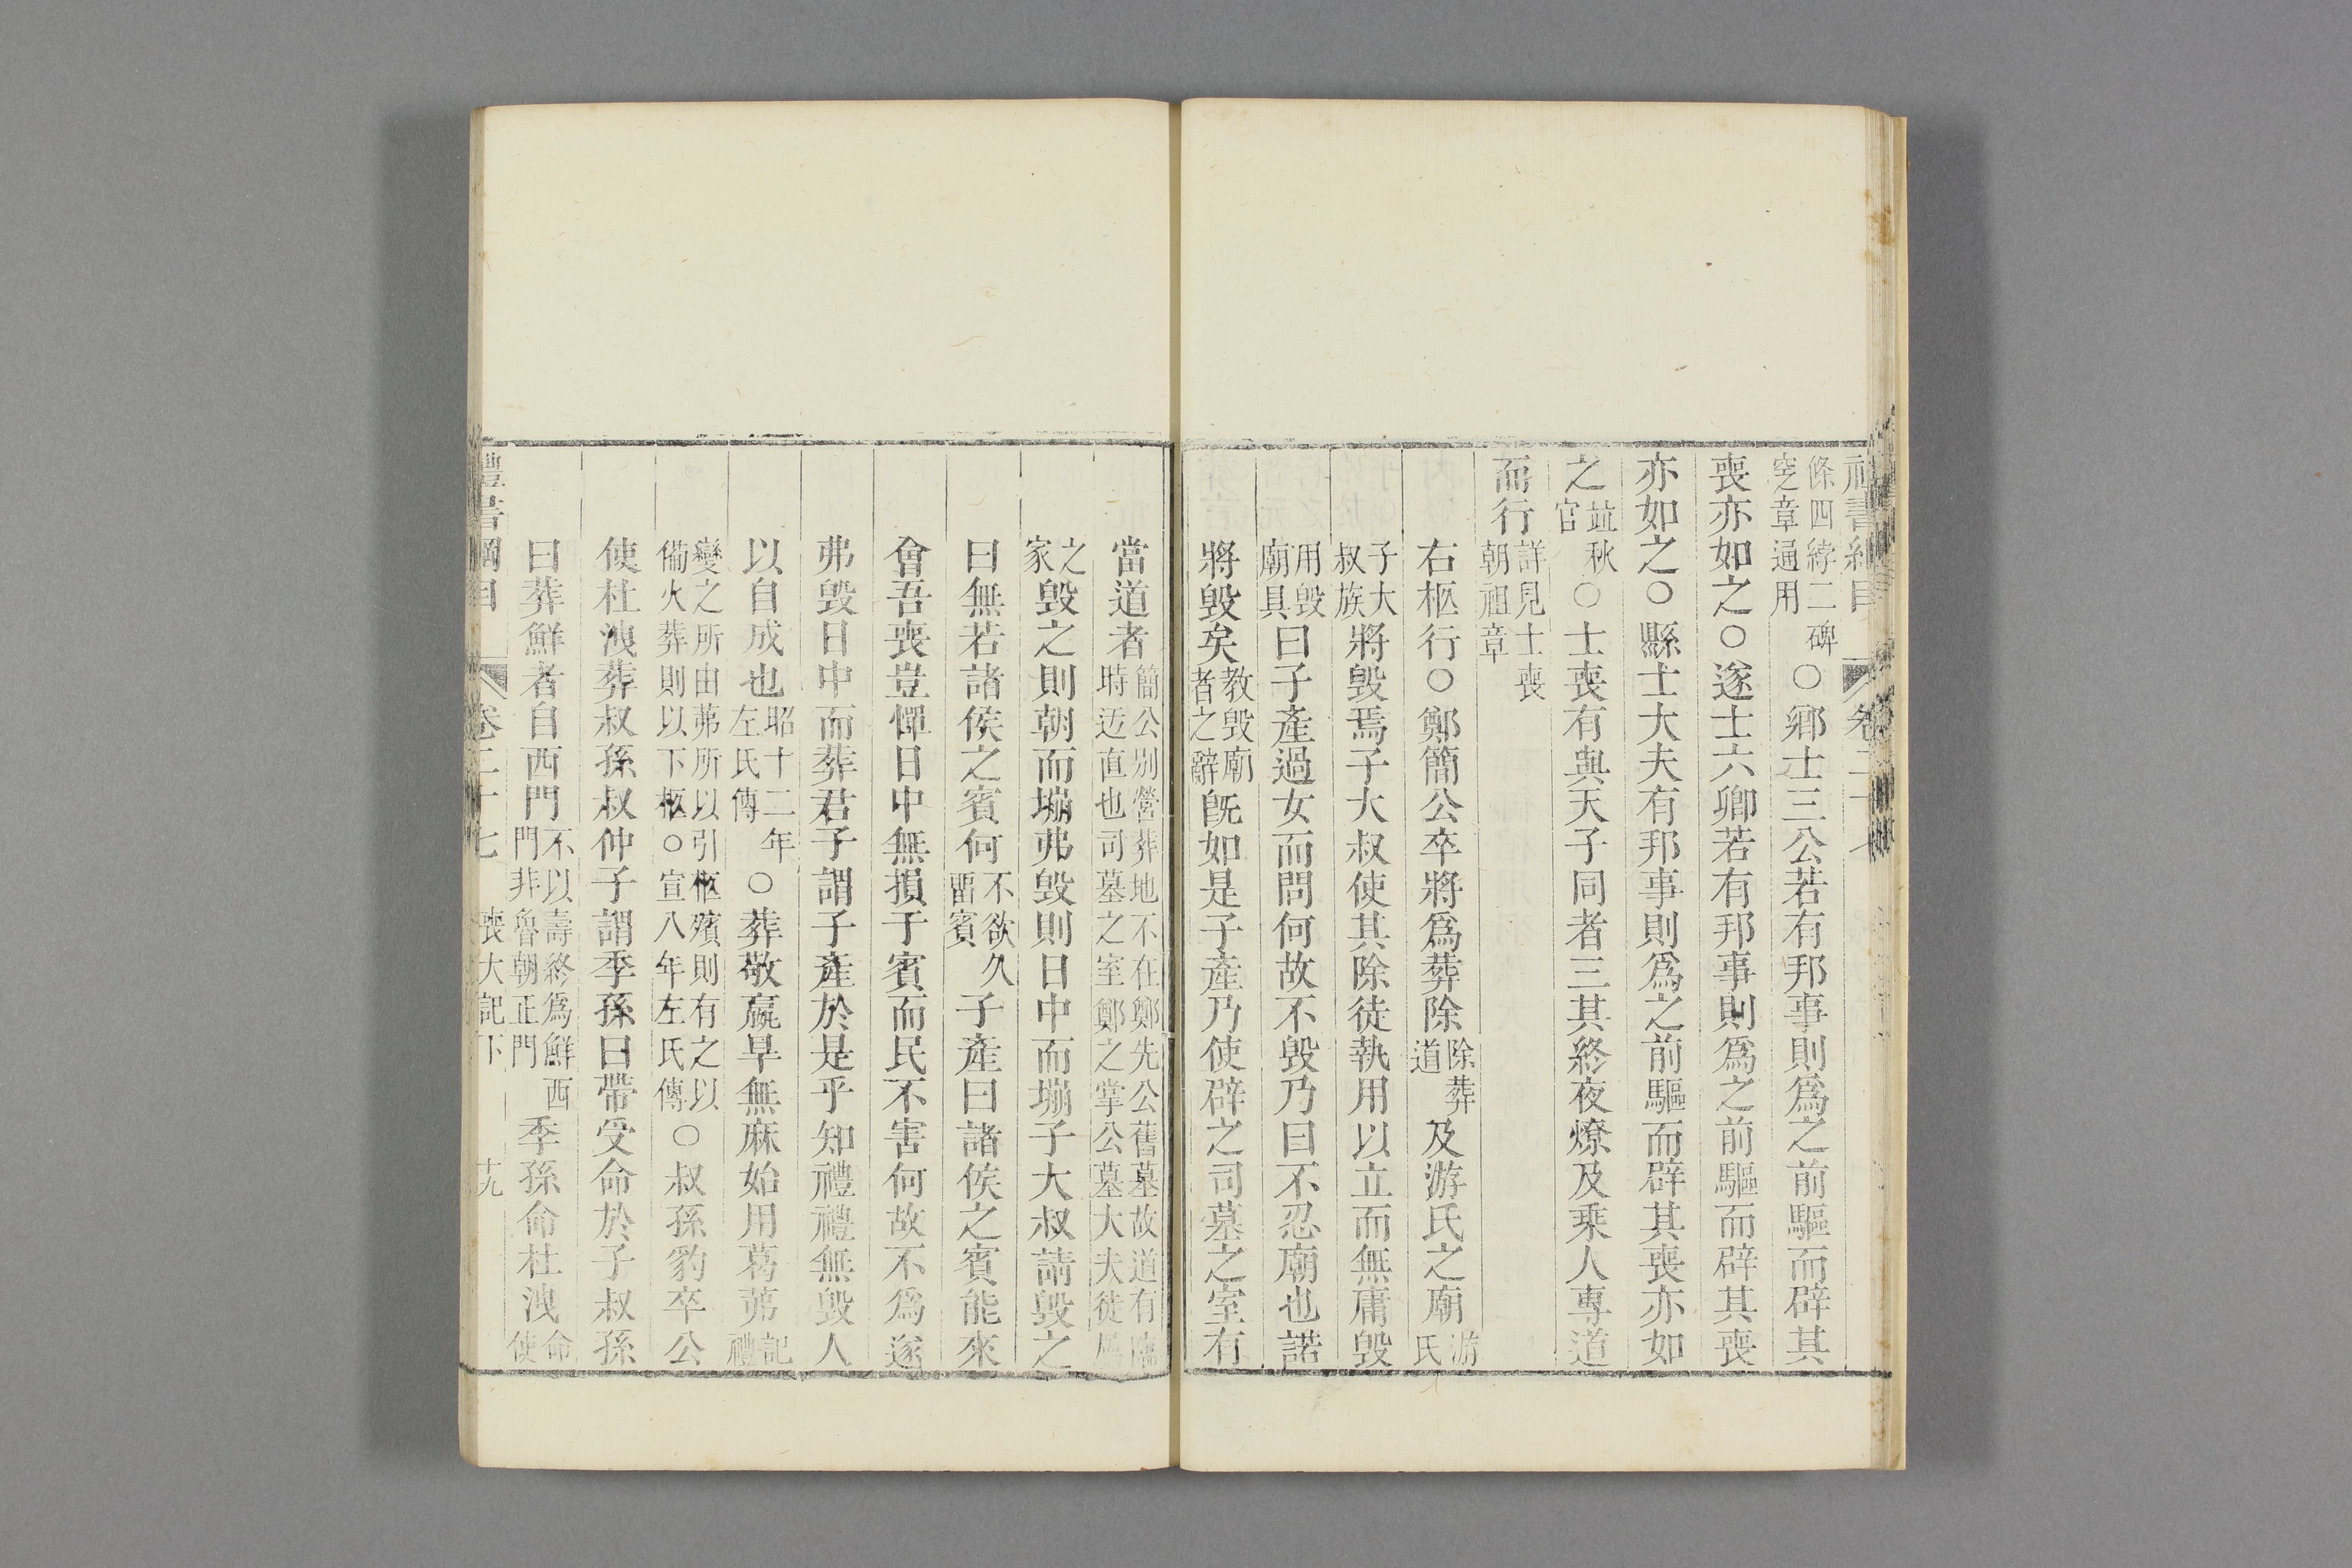 條四綍二碑
窆章通用○鄉士三公若有邦事則爲之前驅而辟其
喪亦如之○遂士六卿若有邦事則爲之前驅而辟其喪
亦如之○縣士大夫有邦事則爲之前驅而辟其喪亦如
之竝秋官○士喪有與天子同者三其終夜燎及乗人專道
而行詳見士喪朝祖章
右柩行○鄭簡公卒將爲葬除除葬道及游氏之廟游氏
子大叔族將毀焉子大叔使其除徒執用以立而無庸毀
用毀廟具曰子產過女而問何故不毀乃曰不忍廟也諾
將毀矣教毀廟者之辭旣如是子產乃使辟之司墓之室有
當道者簡公別營葬地不在鄭先公舊墓故道有臨時迃直也司墓之室鄭之掌公墓大夫徒屬
之家毀之則朝而塴弗毀則日中而塴子大叔請毀之
曰無若諸侯之賓何不欲久畱賓子產曰諸侯之賓能來
會吾喪豈憚日中無損于賓而民不害何故不爲遂
弗毀日中而葬君子謂子產於是乎知禮禮無毀人
以自成也昭十二年左氏傳○葬敬嬴旱無麻始用葛茀記禮
變之所由茀所以引柩殯則有之以備火葬則以下柩○宣八年左氏傳○叔孫豹卒公
使杜洩葬叔孫叔仲子謂季孫曰帶受命於子叔孫
曰葬鮮者自西門不以壽終爲鮮西門非魯朝正門季孫命杜洩命使
禮書綱目 卷二十七 喪大記下 十九